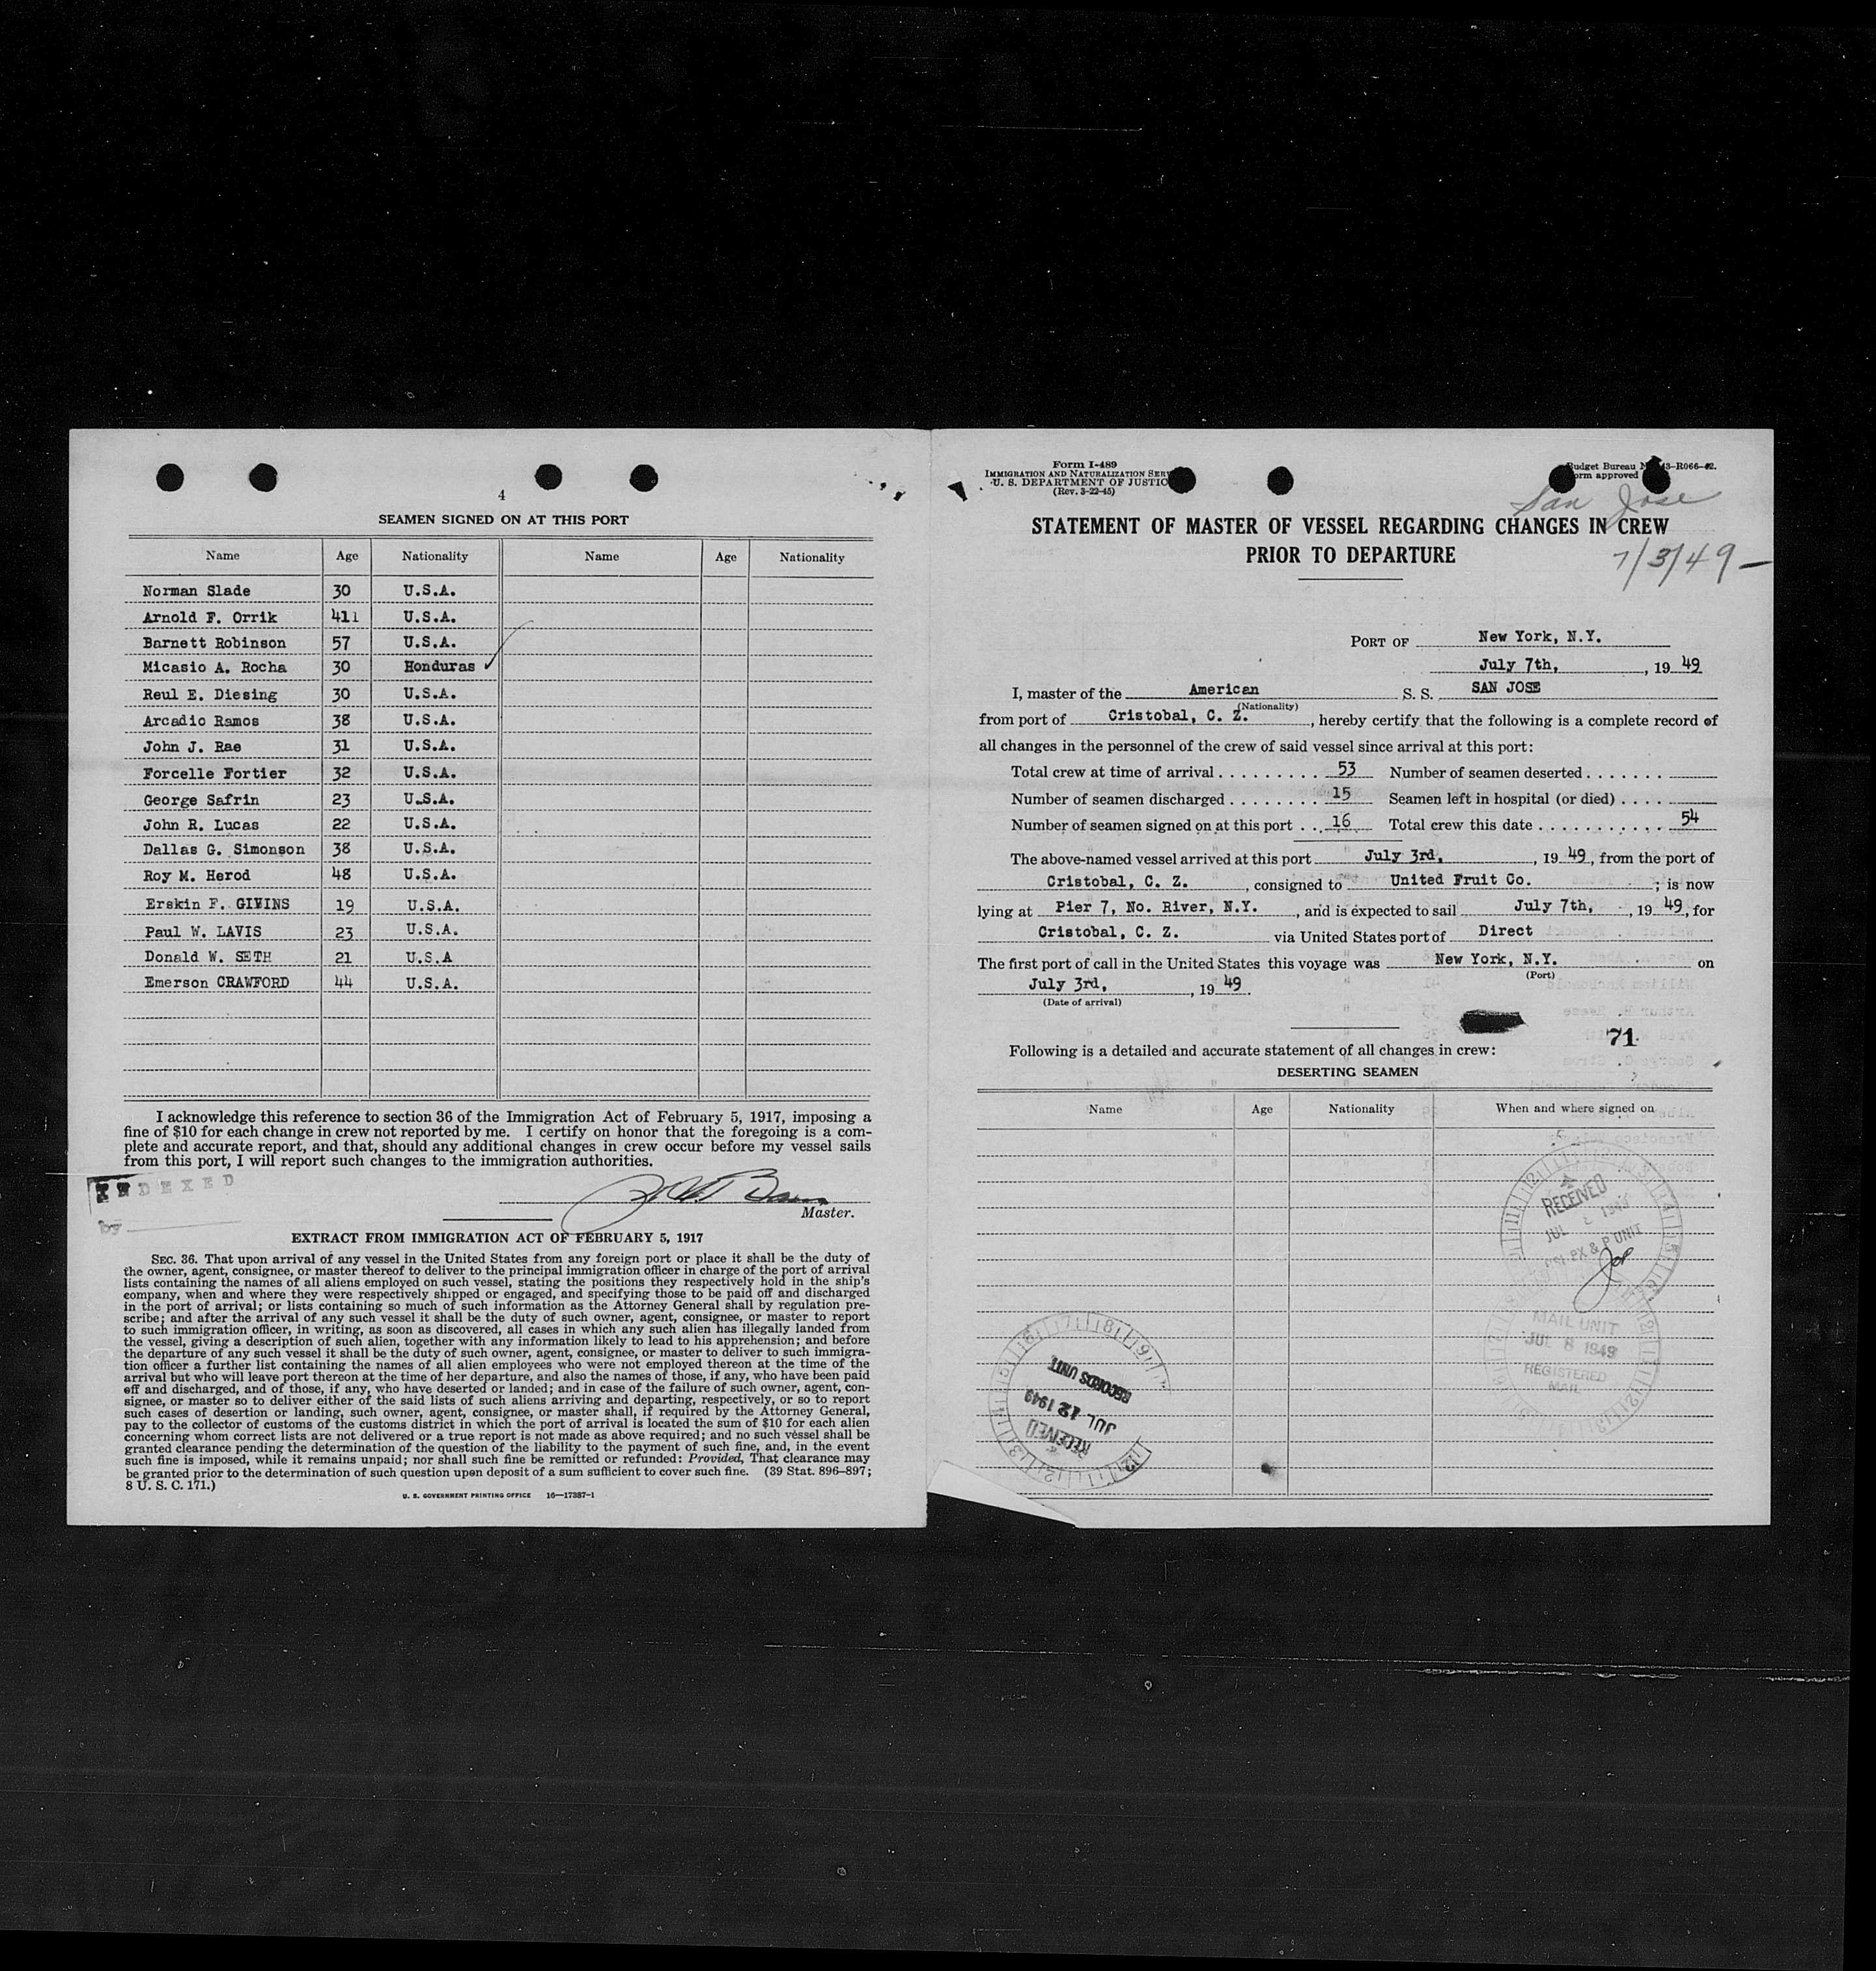 4
SEAMEN SIGNED ON AT THIS PORT
Name Age Nationality Name Age Nationality
Norman Slade 30 U.S.A.
Arnold F. Orrik 411 U.S.A.
Barnett Robinson 57 U.S.A.
Micasio A. Rocha 30 Honduras ✓
Reul E. Diesing 30 U.S.A.
Arcadio Ramos 38 U.S.A.
John J. Rae 31 U.S.A.
Forcelle Fortier 32 U.S.A.
George Safrin 23 U.S.A.
John R. Lucas 22 U.S.A.
Dallas G. Simonson 38 U.S.A.
Roy M. Herod 48 U.S.A.
Erskin F. GIVINS 19 U.S.A.
Paul W. LAVIS 23 U.S.A.
Donald W. SETH 21 U.S.A
Emerson CRAWFORD 44 U.S.A.
I acknowledge this reference to section 36 of the Immigration Act of February 5, 1917, imposing a
fine of $10 for each change in crew not reported by me. I certify on honor that the foregoing is a com-
plete and accurate report, and that, should any additional changes in crew occur before my vessel sails
from this port, I will report such changes to the immigration authorities.
INDEXED
by
Master.
EXTRACT FROM IMMIGRATION ACT OF FEBRUARY 5, 1917
SEC. 36. That upon arrival of any vessel in the United States from any foreign port or place it shall be the duty of
the owner, agent, consignee, or master thereof to deliver to the principal immigration officer in charge of the port of arrival
lists containing the names of all aliens employed on such vessel, stating the positions they respectively hold in the ship's
company, when and where they were respectively shipped or engaged, and specifying those to be paid off and discharged
in the port of arrival; or lists containing so much of such information as the Attorney General shall by regulation pre-
scribe; and after the arrival of any such vessel it shall be the duty of such owner, agent, consignee, or master to report
to such immigration officer, in writing, as soon as discovered, all cases in which any such alien has illegally landed from
the vessel, giving a description of such alien, together with any information likely to lead to his apprehension; and before
the departure of any such vessel it shall be the duty of such owner, agent, consignee, or master to deliver to such immigra-
tion officer a further list containing the names of all alien employees who were not employed thereon at the time of the
arrival but who will leave port thereon at the time of her departure, and also the names of those, if any, who have been paid
off and discharged, and of those, if any, who have deserted or landed; and in case of the failure of such owner, agent, con-
signee, or master so to deliver either of the said lists of such aliens arriving and departing, respectively, or so to report
such cases of desertion or landing, such owner, agent, consignee, or master shall, if required by the Attorney General,
pay to the collector of customs of the customs district in which the port of arrival is located the sum of $10 for each alien
concerning whom correct lists are not delivered or a true report is not made as above required; and no such vessel shall be
granted clearance pending the determination of the question of the liability to the payment of such fine, and, in the event
such fine is imposed, while it remains unpaid; nor shall such fine be remitted or refunded: Provided, That clearance may
be granted prior to the determination of such question upon deposit of a sum sufficient to cover such fine. (39 Stat. 896-897;
8 U. S. C. 171.)
U. S. GOVERNMENT PRINTING OFFICE 16—17387-1
Form I-489
IMMIGRATION AND NATURALIZATION SERV
U. S. DEPARTMENT OF JUSTIC
(Rev. 3-22-45)
Budget Bureau N 43-R066-42.
orm approved
San Jose
STATEMENT OF MASTER OF VESSEL REGARDING CHANGES IN CREW
PRIOR TO DEPARTURE
7/3/49—
PORT OF New York, N.Y.
July 7th, , 19 49
I, master of the American S. S. SAN JOSE
(Nationality)
from port of Cristobal, C. Z. , hereby certify that the following is a complete record of
all changes in the personnel of the crew of said vessel since arrival at this port:
Total crew at time of arrival . . . . . . . . . 53 Number of seamen deserted . . . . . . .
Number of seamen discharged . . . . . . . . 15 Seamen left in hospital (or died) . . . .
Number of seamen signed on at this port . . . 16 Total crew this date . . . . . . . . . . . 54
The above-named vessel arrived at this port July 3rd, , 19 49, from the port of
Cristobal, C. Z. , consigned to United Fruit Co. ; is now
lying at Pier 7, No. River, N.Y. , and is expected to sail July 7th, , 19 49, for
Cristobal, C. Z. via United States port of Direct
The first port of call in the United States this voyage was New York, N.Y. on
(Port)
July 3rd, , 19 49.
(Date of arrival)
71
Following is a detailed and accurate statement of all changes in crew:
DESERTING SEAMEN
Name Age Nationality When and where signed on
RECEIVED
JUL 1949
PX & P UNIT
MAIL UNIT
JUL 8 1949
REGISTERED
MAIL
RECEIVED
JUL 12 1949
RECORDS UNIT